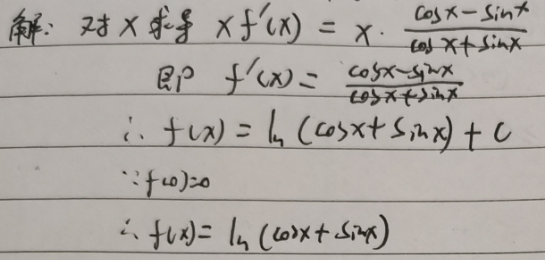 解: 对 x 求导 x f'(x) = x · (cosx - sinx)/(cosx + sinx)
即 f'(x) = (cosx - sinx)/(cosx + sinx)
∴ f(x) = ln (cosx + sinx) + C
∵ f(0)=0
∴ f(x) = ln (cosx + sinx)